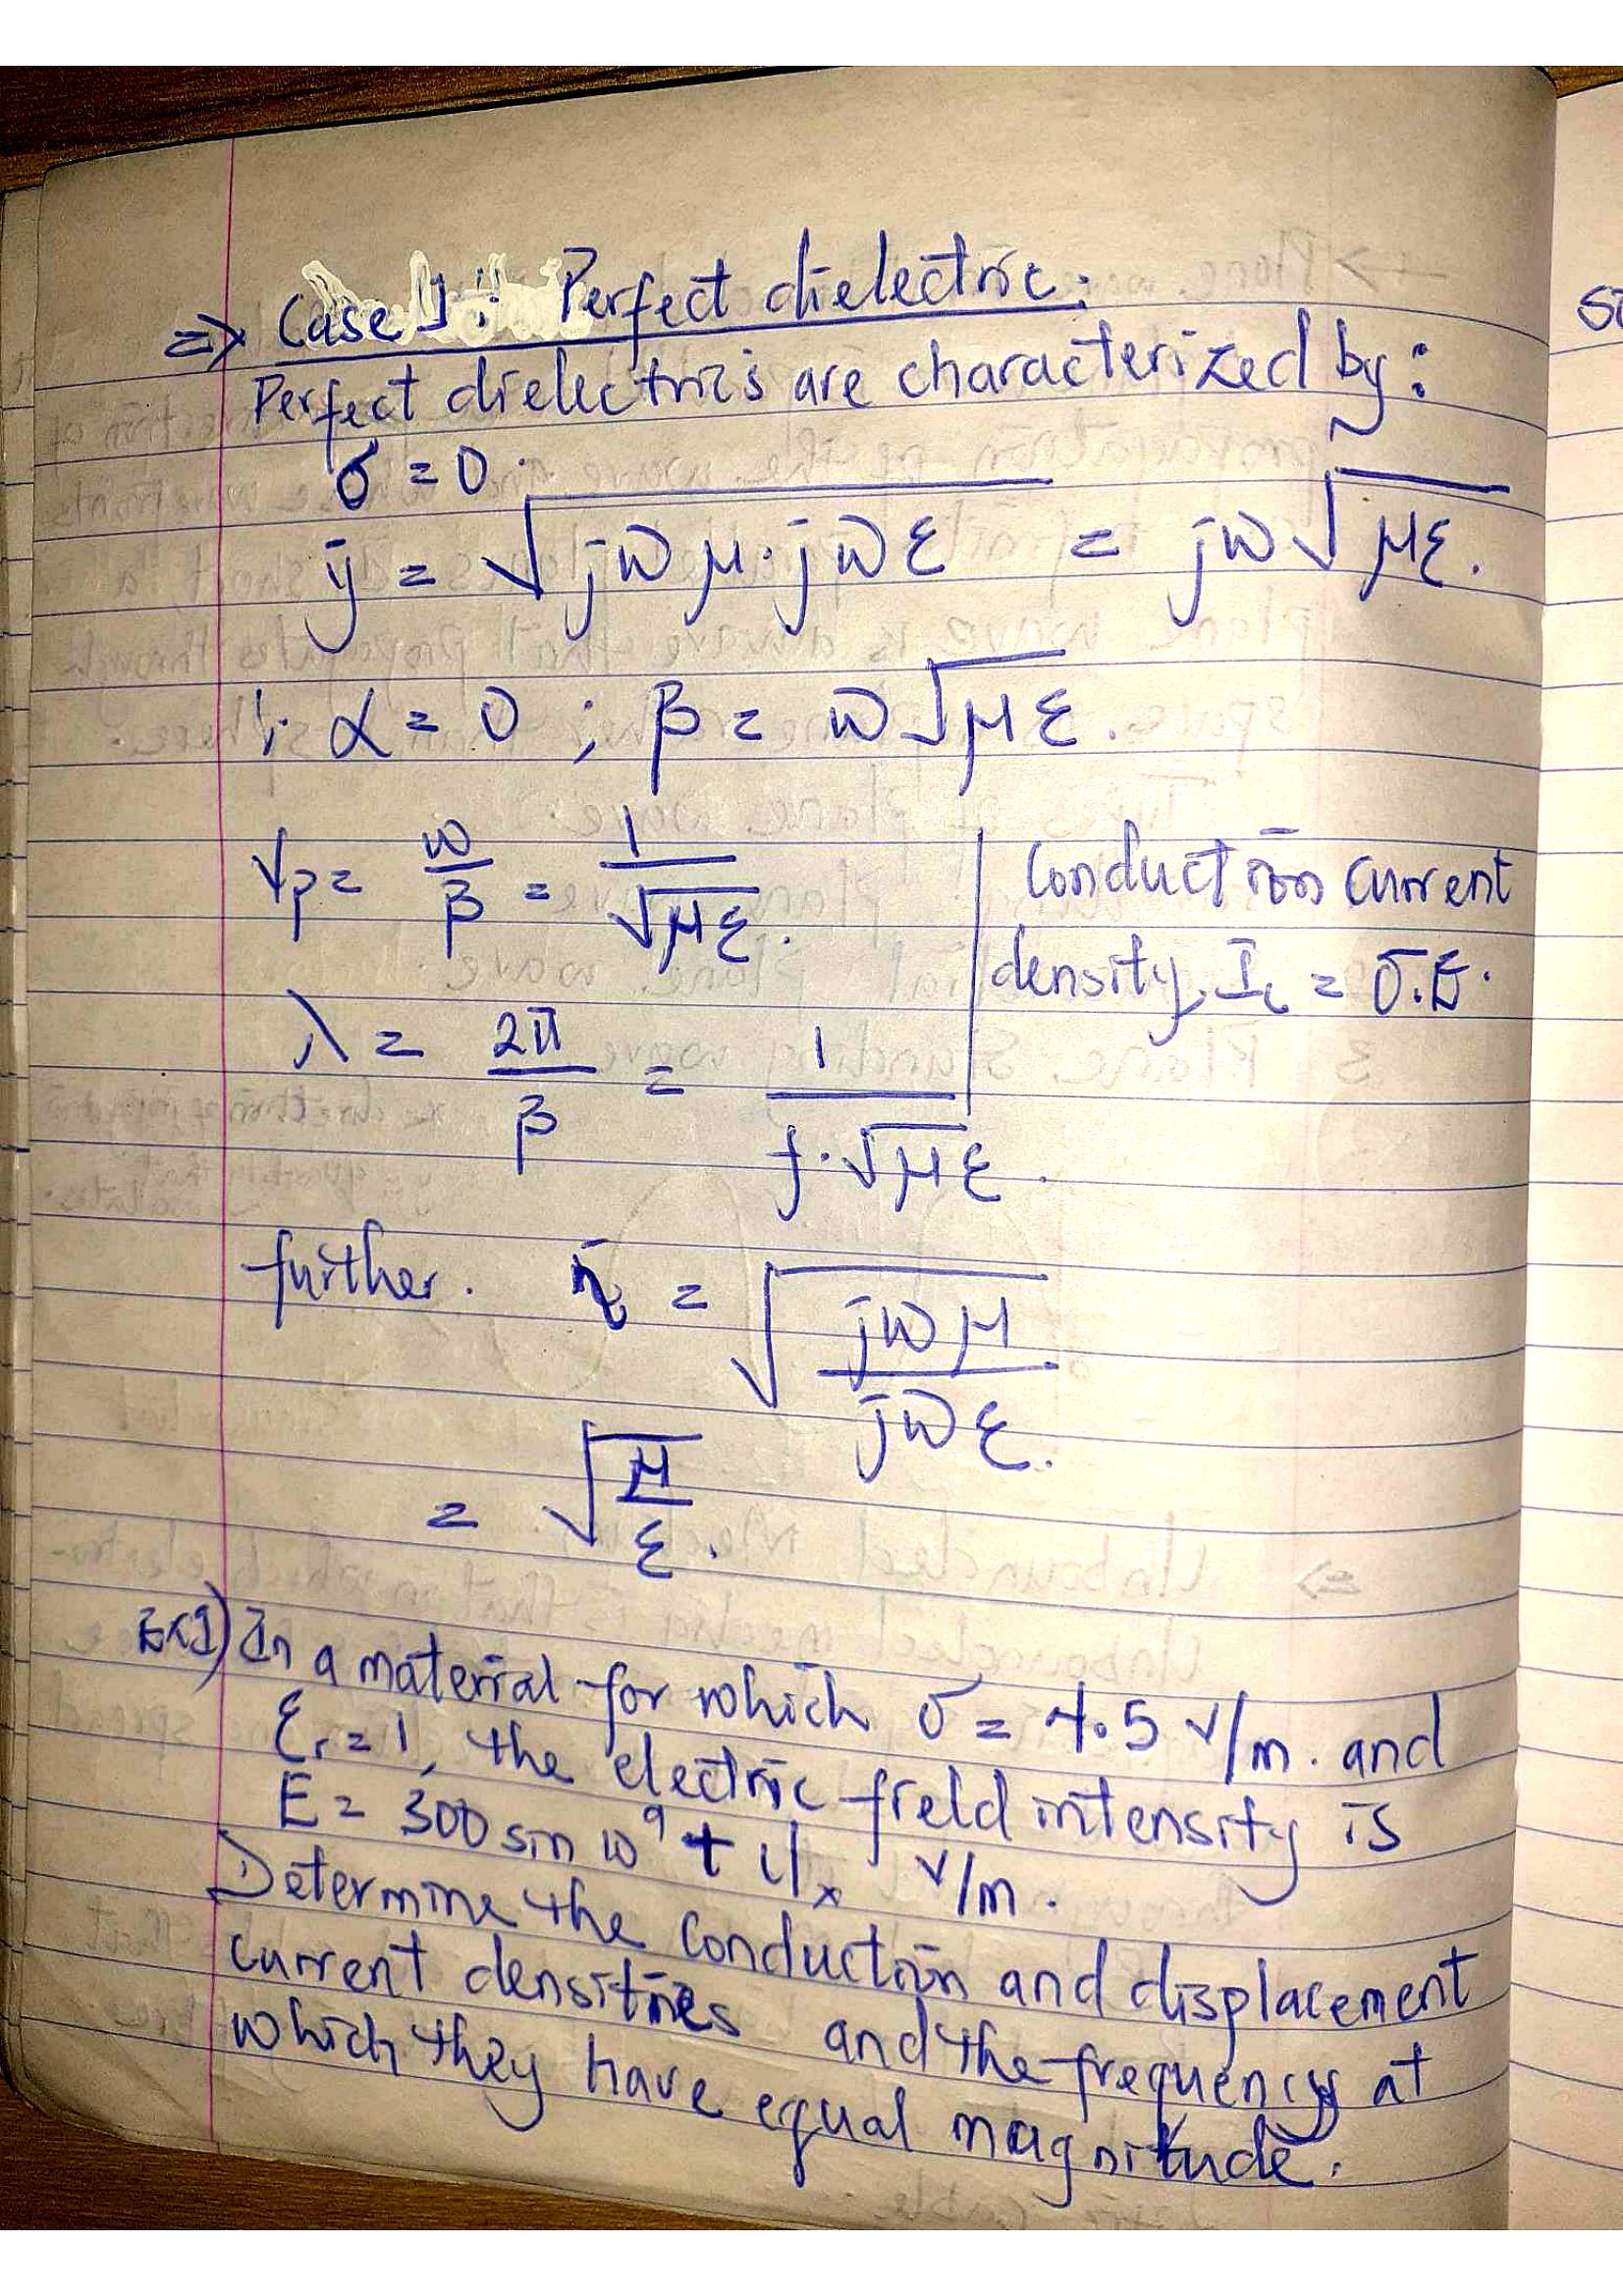 => Case 1: Perfect dielectric:
Perfect dielectrics are characterized by:
σ = 0.
γ̄ = √(jωμ·jωε) = jω√(με).
∴ α = 0 ; β = ω√(με).
Vp = ω/β = 1/√(με).
λ = 2π/β = 1/(f·√(με)).
Conduction current
density, Ic = σ.E.
further. η̄ = √(jωμ/jωε).
= √(μ/ε).
Ex1) In a material for which σ = 4.5 v/m. and
εr = 1, the electric field intensity is
E = 300 sin 10⁹ t Ux v/m.
Determine the conduction and displacement
current densities and the frequency at
which they have equal magnitude.